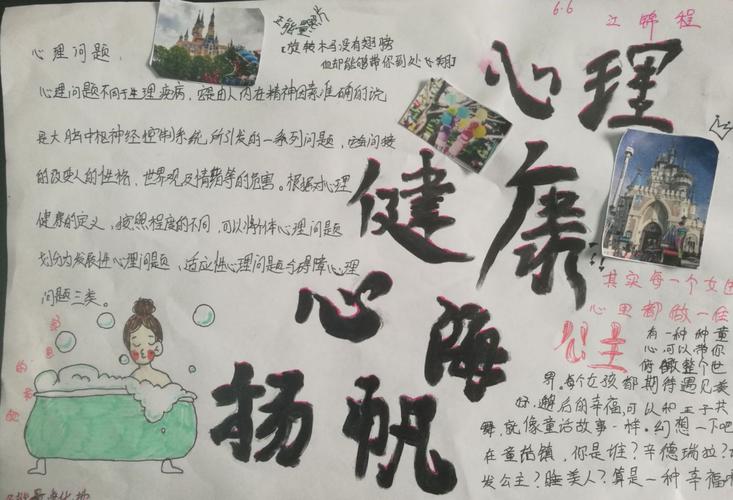 6.6 江锦程
心理 健康
心海 扬帆
旋转木马没有翅膀
但却能够带你到处飞翔
心理问题：
心理问题不同于生理疾病，它是由人内在精神因素准确的说
是大脑中枢神经控制系统所引发的一系列问题，它会间接
的改变人的性格，世界观及情绪等的危害。根据对心理
健康的定义，按照程度的不同，可以将个体心理问题
划分为发展性心理问题，适应性心理问题与障碍心理
问题三类。
其实每一个女
心里都做一
公主
有一种种童
心可以带你
俯瞰整个世
界，每个女孩都期待遇见美
好，邂后的幸福，可以和王子共
舞，就像童话故事一样。幻想一下吧
在童话镇，你是谁？辛德瑞拉？
发公主？睡美人？算是一种幸福